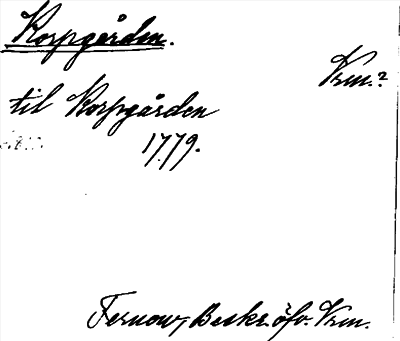 Korpgården.
Vrm.?
til Korpgården
1779.
Fernow, Beskr. öfv. Vrm.